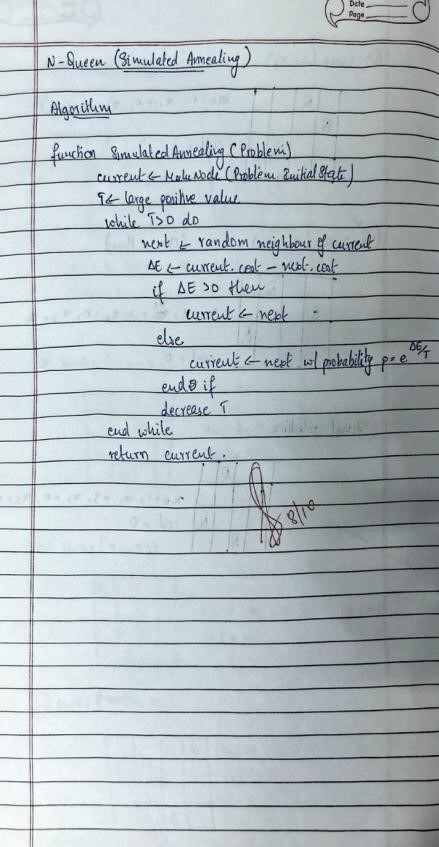 Date
Page
N-Queen (Simulated Annealing)
Algorithm
function Simulated Annealing (Problem)
current ← MakeNode (Problem. Initial State)
T ← large positive value.
while T>0 do
next ← random neighbour of current
ΔE ← current.cost - next.cost
if ΔE >0 then
current ← next
else
current ← next w/ probability p = e^ΔE/T
end if
decrease T
end while
return current.
8/10